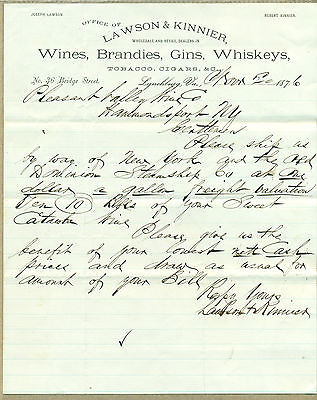 JOSEPH LAWSON. ROBERT KINNIER.
OFFICE OF
LAWSON & KINNIER,
WHOLESALE AND RETAIL DEALERS IN
Wines, Brandies, Gins, Whiskeys,
TOBACCO, CIGARS, &C.
No. 36 Bridge Street. Lynchburg, Va., 1876
Pleasant Valley Wine Co
Hammondsport NY
Gentlemen
Please ship us
by way of New York and the Old
Dominion Steamship Co at One
dollar a gallon freight valuation
Ten (10) of your Sweet
Catawba Wine
Please give us the
benefit of your lowest nett Cash
prices and draw as usual for
amount of your Bill
Resp Yours
Lawson & Kinnier